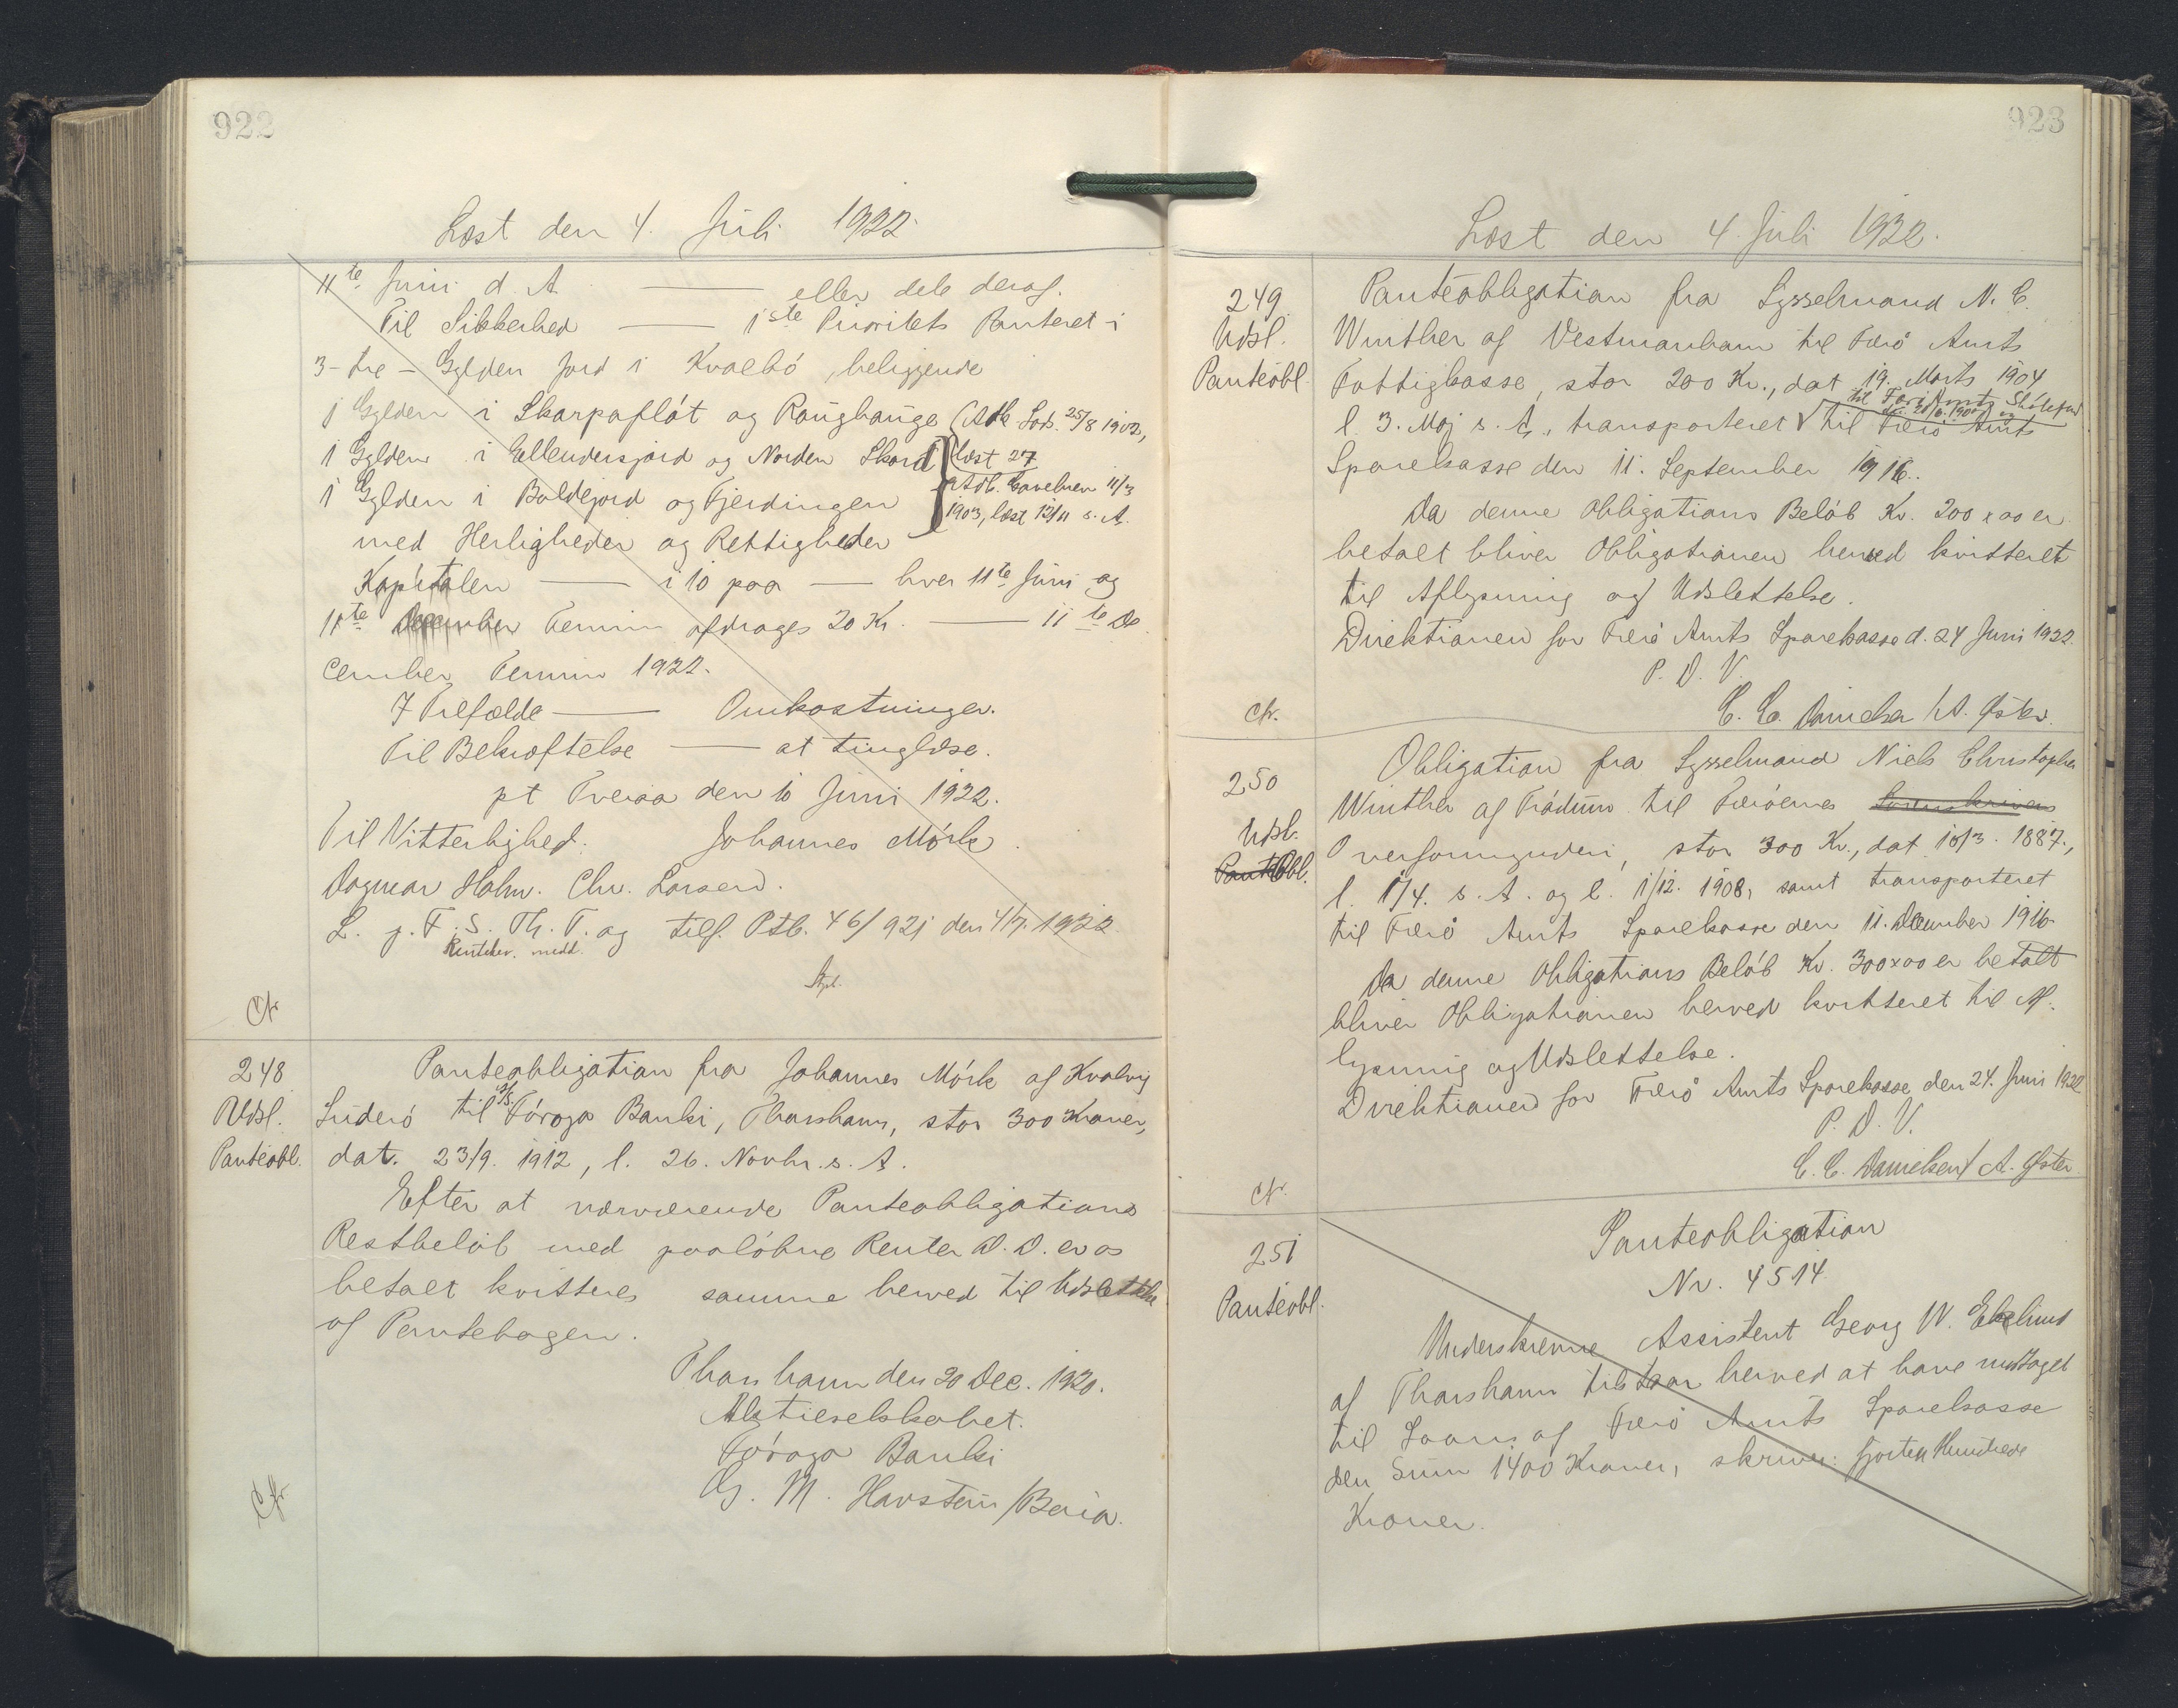 922
Læst den 4. Juli 1922.
11te Juni d. A. —— eller dele deraf.
Til Sikkerhed —— 1ste Prioritets Panteret i
3 - tre - Gylden Jord i Kvalbö, beliggende
1 Gylden i Skarpaflót og Raughauge (Adk. Sods. 25/8 1902,
1 Gylden i Ellendersjord og Norden Skard læst 27
1 Gylden i Baldejord og Fjerdingen Adk. 11/3
1903, læst 12/11 s. A.
med Herligheder og Rettigheder
Kapitalen —— i 10 paa —— hver 11te Juni og
11te December Termin afdrages 20 Kr. —— 11te De
cember Termin 1922.
I Tilfælde —— Omkostninger.
Til Bekræftelse —— at tinglæse.
pt Tveraa den 10 Juni 1922.
Til Vitterlighed: Johannes Mörk.
Dagmar Holm. Chr. Larsen.
L. p. F. S. Th. T. og tilf. Ptb. 46/921 den 4/7. 1922
Rentebev. medd.
Cfr
248
Udsl.
Panteobl.
Panteobligation fra Johannes Mörk af Kvalvig
Suderö til A/S Föroya Banki, Thorshavn, stor 300 Kroner,
dat. 23/9. 1912, l. 26. Novbr. s. A.
Efter at nærværende Panteobligations
Restbelöb med paalöbne Renter D. D. er os
betalt kvitteres samme herved til Udslettelse
af Pantebogen.
Thorshavn den 20 Dec. 1920.
Aktieselskabet.
Föroya Banki
G. M. Havstein /
Cfr
923
Læst den 4. Juli 1922.
249.
Udsl.
Panteobl.
Panteobligation fra Sysselmand N. C.
Winther af Vestmanhavn til Færö Amts
Fattigkasse, stor 200 Kr., dat 19. Marts 1904
til Færö Amts Skolefond
l. 3. Maj s. A., transporteret √ til Færö Amts
Sparekasse den 11. September 1916.
Da denne Obligations Belöb Kr. 200 x 00 er
betalt bliver Obligationen herved kvitteret
til Aflysning og Udslettelse.
Direktionen for Færö Amts Sparekasse d. 24 Juni 1922.
P. D. V.
C. C. Danielsen / A. Öster.
Cfr.
250
Udsl.
PantObl.
Obligation fra Sysselmand Niels Christopher
Winther af Trödum til Færöernes Sorenskriver
Overformynderi, stor 300 Kr., dat 10/3. 1887.,
l. 1/4. s. A. og l. 1/12. 1908, samt transporteret
til Færö Amts Sparekasse den 11. December 1916.
Da denne Obligations Belöb Kr. 300 x 00 er betalt
bliver Obligationen herved kvitteret til Af-
lysning og Udslettelse.
Direktionen for Færö Amts Sparekasse, den 24. Juni 1922
P. D. V.
C. C. Danielsen / A. Öster
Cfr.
251
Panteobl.
Panteobligation
Nr. 4514
Underskrevne Assistent Georg W. Ekelund
af Thorshavn tilstaar herved at have modtaget
til Laans af Færö Amts Sparekasse
den Sum 1400 Kroner, skriver: fjorten Hundrede
Kroner.